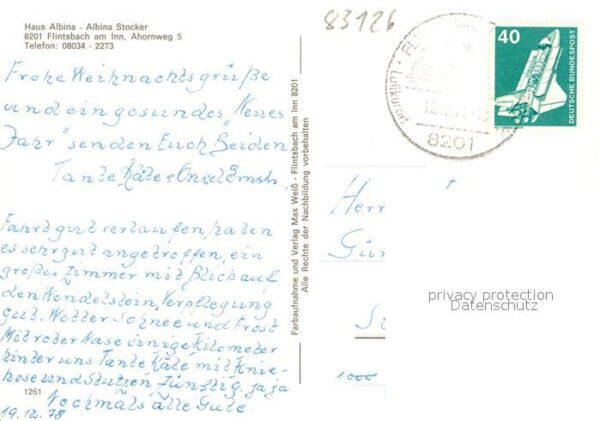 Haus Albina - Albina Stocker
8201 Flintsbach am Inn, Ahornweg 5
Telefon: 08034 - 2273
Frohe Weihnachtsgrüße
und ein gesundes "Neues
Jahr" senden Euch Beiden
Tante Käte u Onkel Ernst.
Fahrt gut verlaufen, haben
es sehr gut angetroffen, ein
großes Zimmer mit Blick auf
den Wendelstein, Verpflegung
gut. Wetter Schnee und Frost
Mit roter Nase einige Kilometer
hinter uns Tante Käte mit Knie-
hose und Stutzen, zünftig, ja ja
Nochmals alle Gute.
1261
19.12.78
Farbaufnahme und Verlag Max Weiß - Flintsbach am Inn 8201
Alle Rechte der Nachbildung vorbehalten
83126
8201
40
DEUTSCHE BUNDESPOST
Herr
Gün
privacy protection
Datenschutz
1000